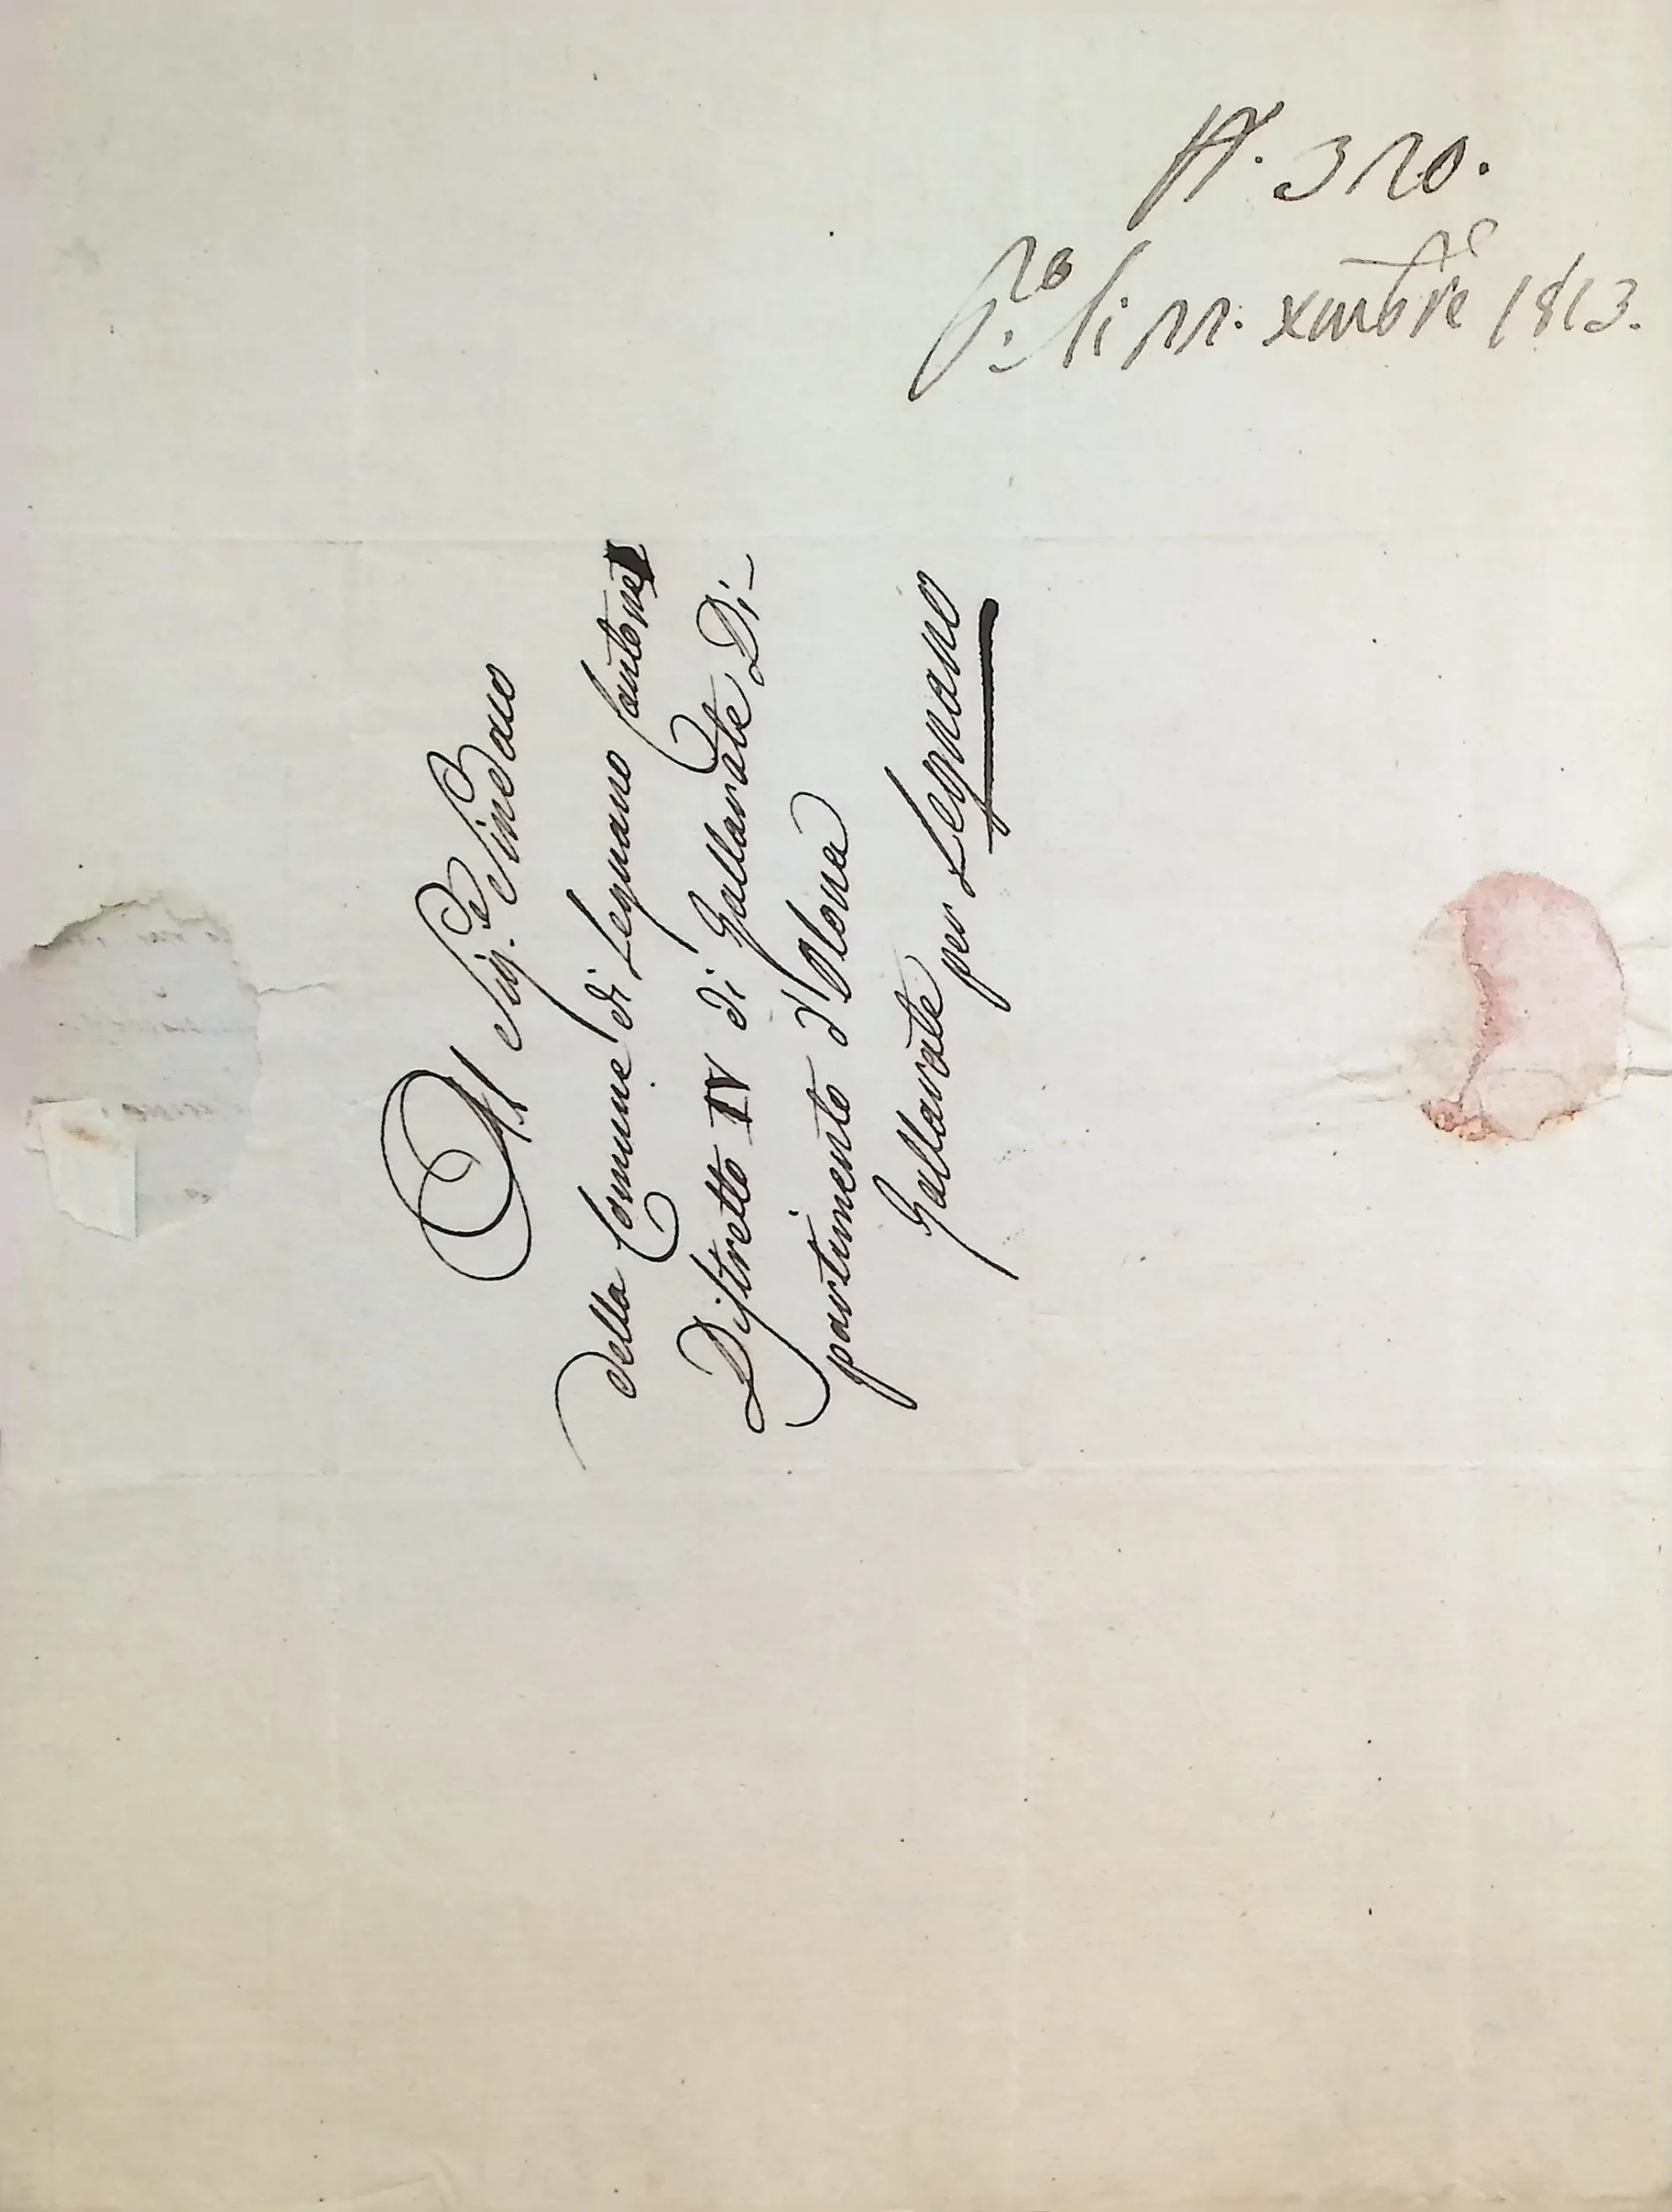 N. 320.
P.to li 22. xmbre 1813.
Al Sig.e Sindaco
della Comune di Legnano Cantone
Distretto IV di Gallarate Di-
partimento d'Olona
Gallarate per Legnano